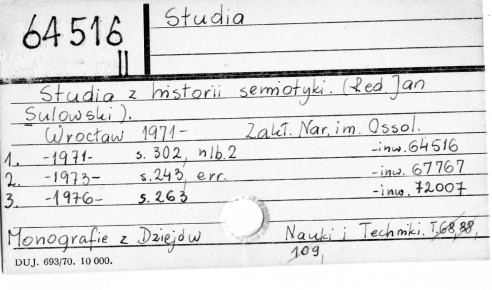 64516
II
Studia
Studia z historii semiotyki. (Red Jan
Sulowski).
Wrocław 1971- Zakł. Nar. im. Ossol.
1. -1971- s. 302, nlb. 2 -inw. 64516
2. -1973- s. 243, err. -inw. 67767
3. -1976- s. 263 -inw. 72007
Monografie z Dziejów Nauki i Techniki. T. 68, 88,
109,
DUJ. 693/70. 10 000.